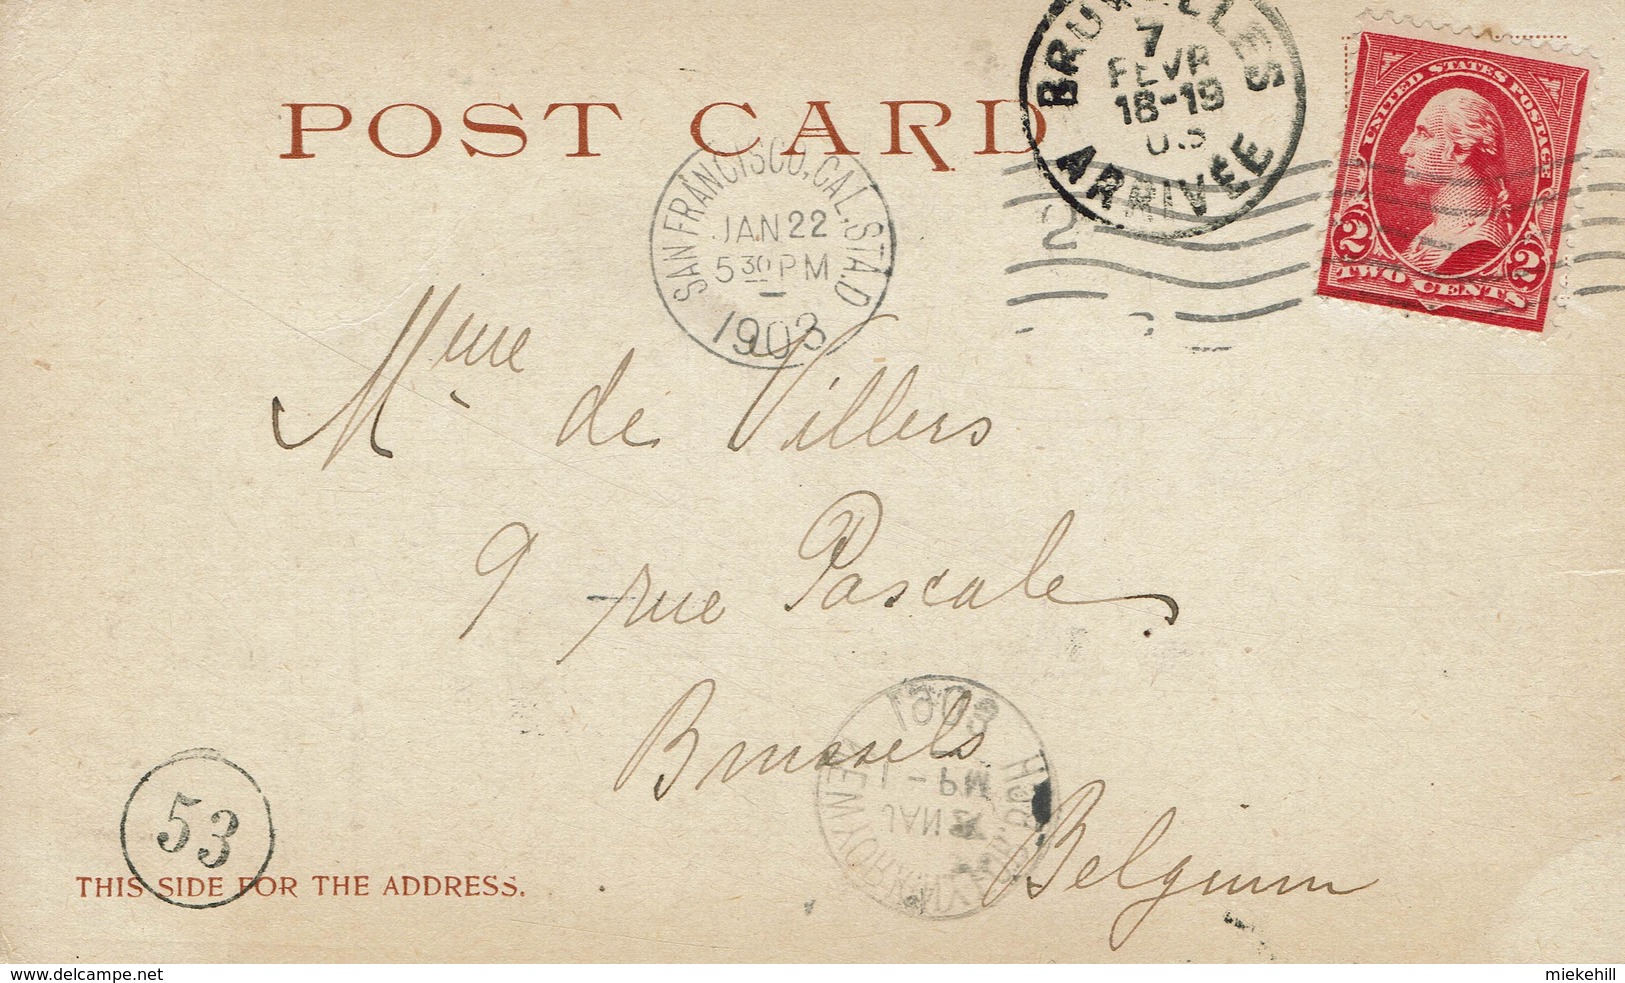 POST CARD
BRUXELLES
7
FEVR
18-19
03
ARRIVÉE
UNITED STATES POSTAGE
2 2
TWO CENTS
SAN FRANCISCO, CAL. STA. D
JAN 22
5 30 PM
1903
2
Mme de Villers
9 rue Pascale
Brussels
Belgium
1903
PM
JAN
NEW YORK, N.Y.
53
THIS SIDE FOR THE ADDRESS.
www.delcampe.net
miekehill